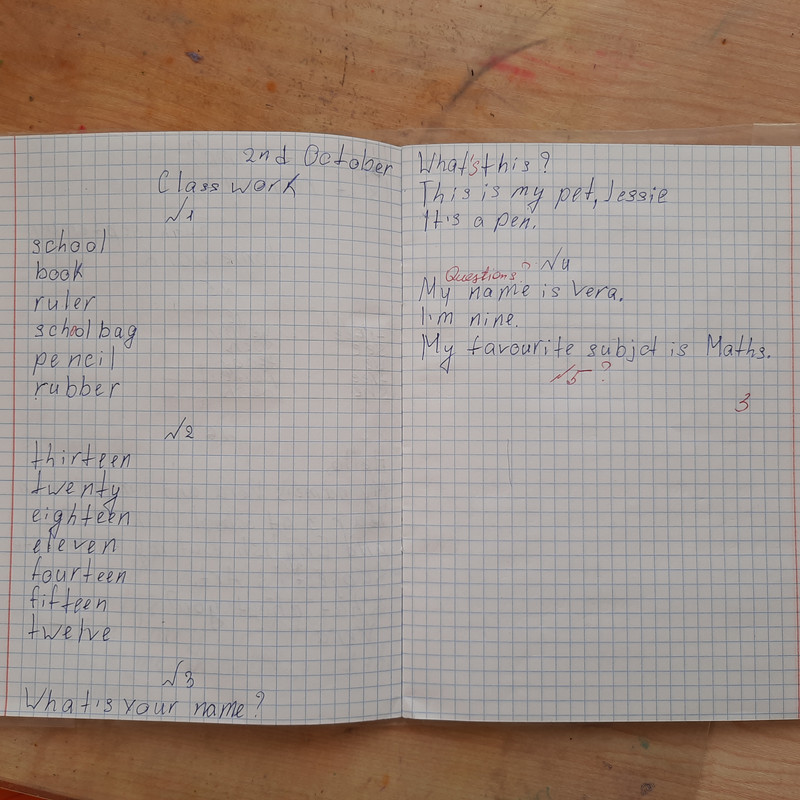 2nd October
Class work
№1
school
book
ruler
school bag
pencil
rubber
№2
thirteen
twenty
eighteen
eleven
fourteen
fifteen
twelve
№3
What's your name?
What's this?
This is my pet, Jessie
It's a pen.
№4
Questions?
My name is Vera.
I'm nine.
My favourite subjct is Maths.
№5 ?
3